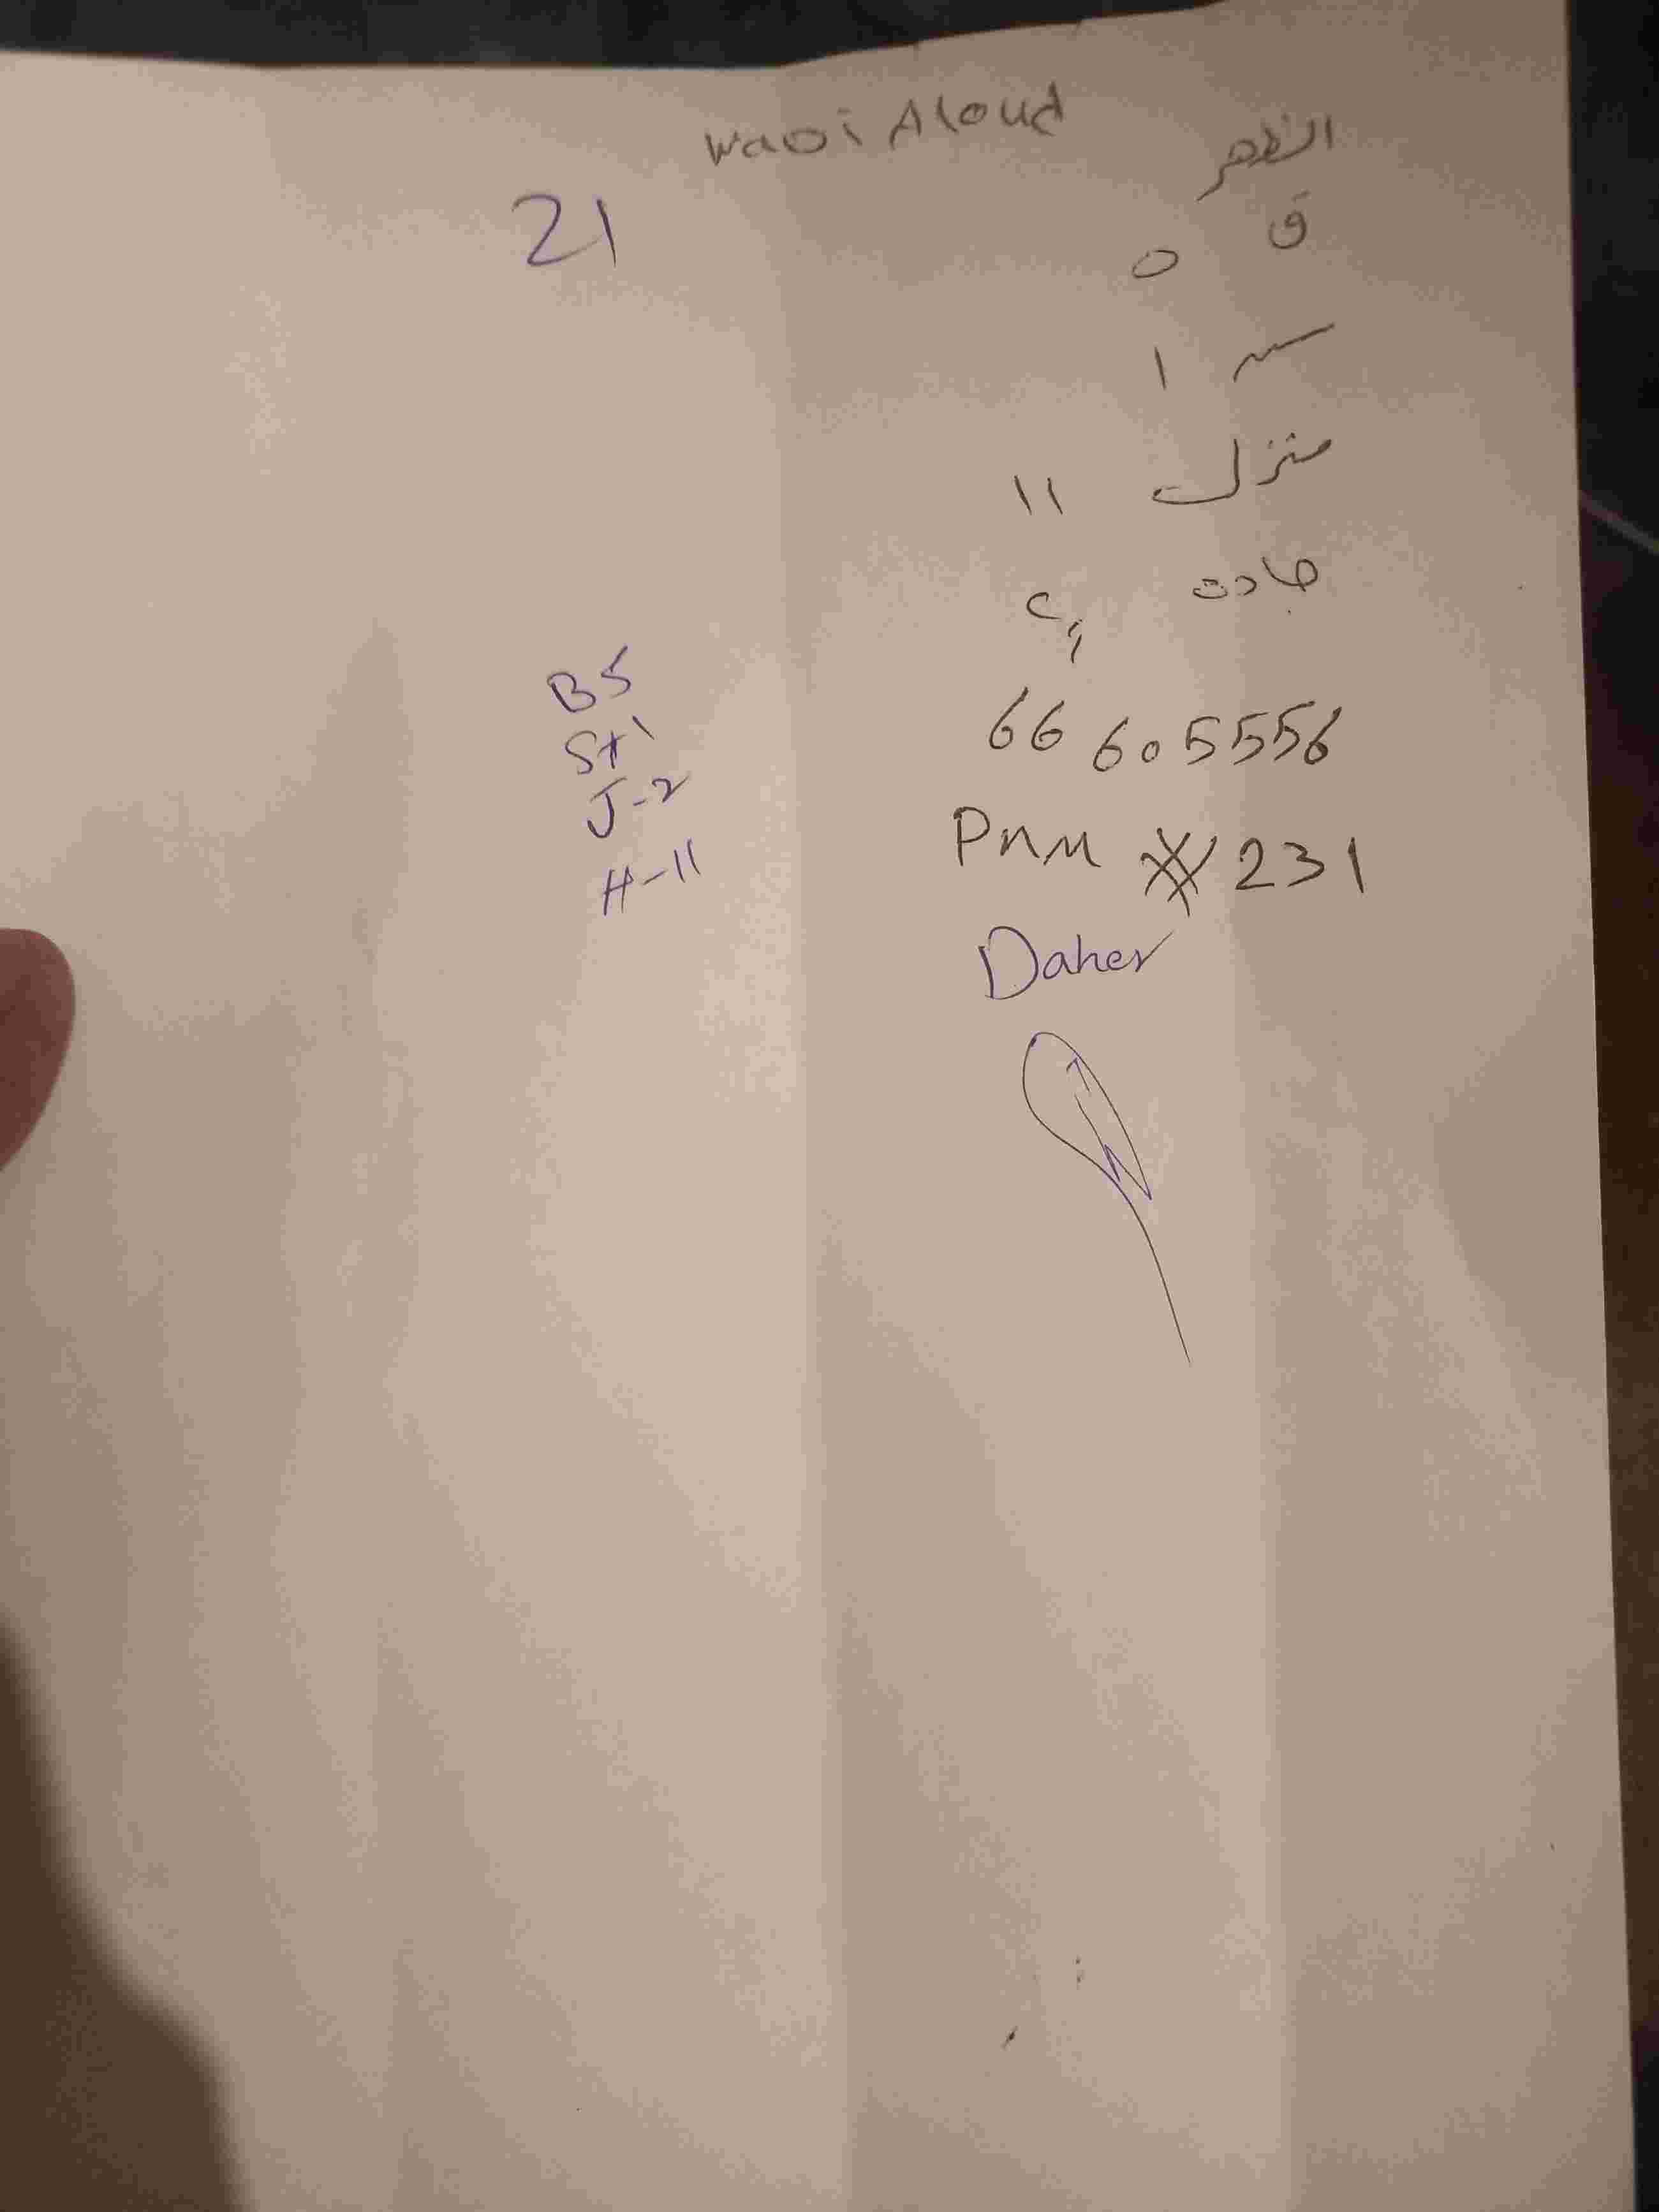 Waoi Aloud
الظهر
21
ق ٥
س ١
منزل ١١
جادة ٢
B5
St 1
J-2
H-11
66605556
PNM # 231
Daher